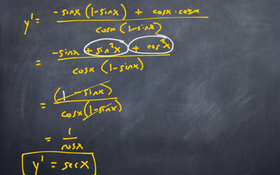 y' = -sinx (1-sinx) + cosx·cosx / cosx (1-sinx)
= -sinx + sin²x + cos²x / cosx (1-sinx)
= (1 - sinx) / cosx(1-sinx)
= 1 / cosx
y' = secx